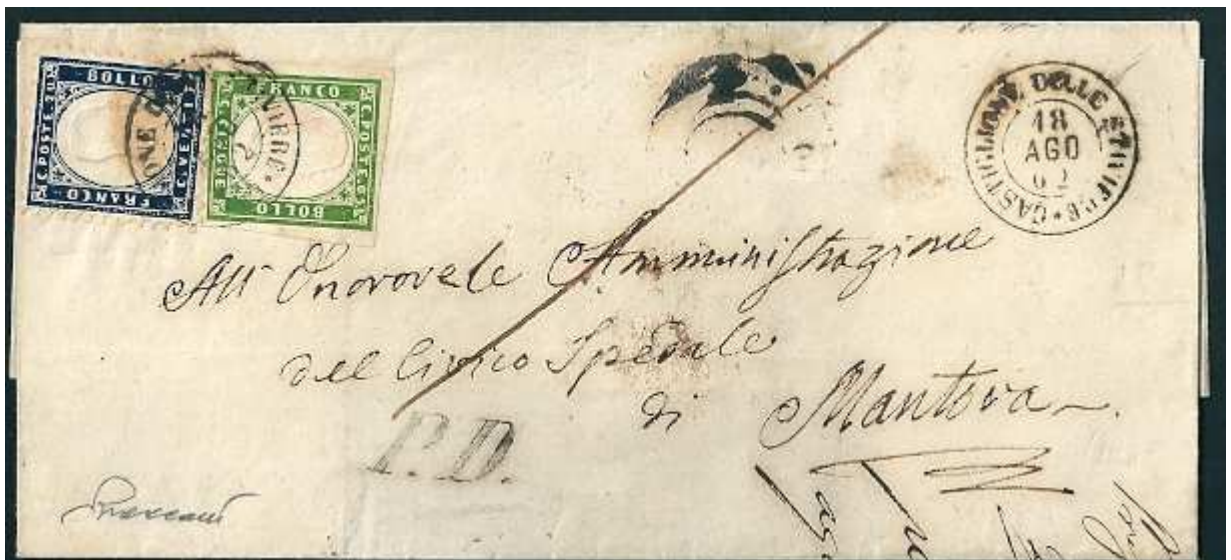 BOLLO
C. POSTE. 20
C. VENTI
FRANCO
FRANCO
C. POSTE. 5
C. CINQUE
BOLLO
ONE D
VIERE
CASTIGLIONE DELLE STIVIERE
18
AGO
62
All' Onorovele Amministrazione
del Civico Spedale
di Mantova
P.D.